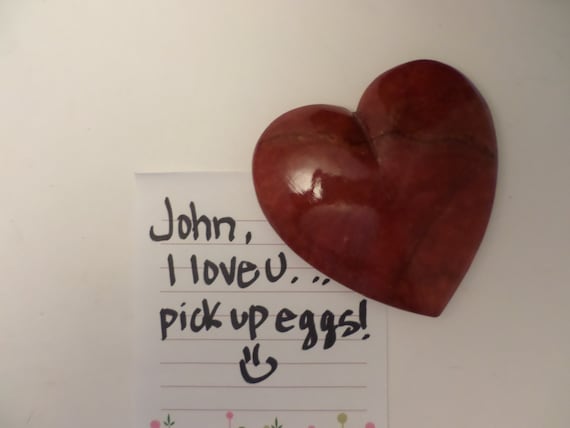 John,
I love U...
pick up eggs!